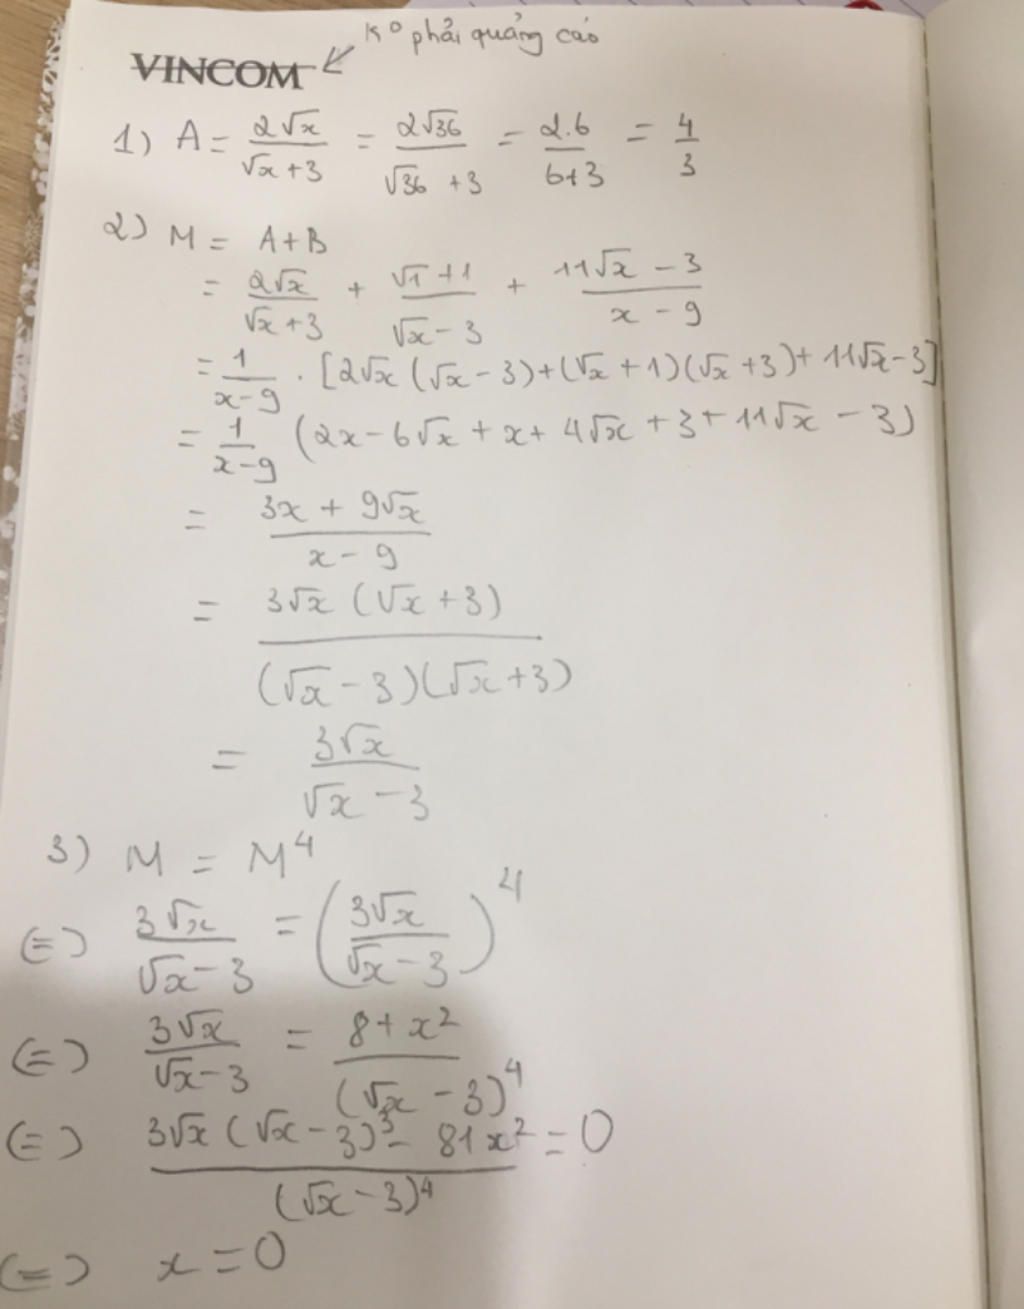 K° phải quảng cáo
VINCOM ↙
1) A = 2√x / (√x + 3) = 2√36 / (√36 + 3) = 2.6 / (6+3) = 4/3
2) M = A + B
= 2√x / (√x + 3) + (√1 + 1) / (√x - 3) + (11√x - 3) / (x - 9)
= 1/(x-9) . [2√x (√x - 3) + (√x + 1)(√x + 3) + 11√x - 3]
= 1/(x-9) (2x - 6√x + x + 4√x + 3 + 11√x - 3)
= (3x + 9√x) / (x - 9)
= 3√x (√x + 3) / (√x - 3)(√x + 3)
= 3√x / (√x - 3)
3) M = M⁴
(=) 3√x / (√x - 3) = (3√x / (√x - 3))⁴
(=) 3√x / (√x - 3) = (8+x²) / (√x - 3)⁴
(=) (3√x (√x - 3)³ - 81x²) / (√x - 3)⁴ = 0
(=) x = 0